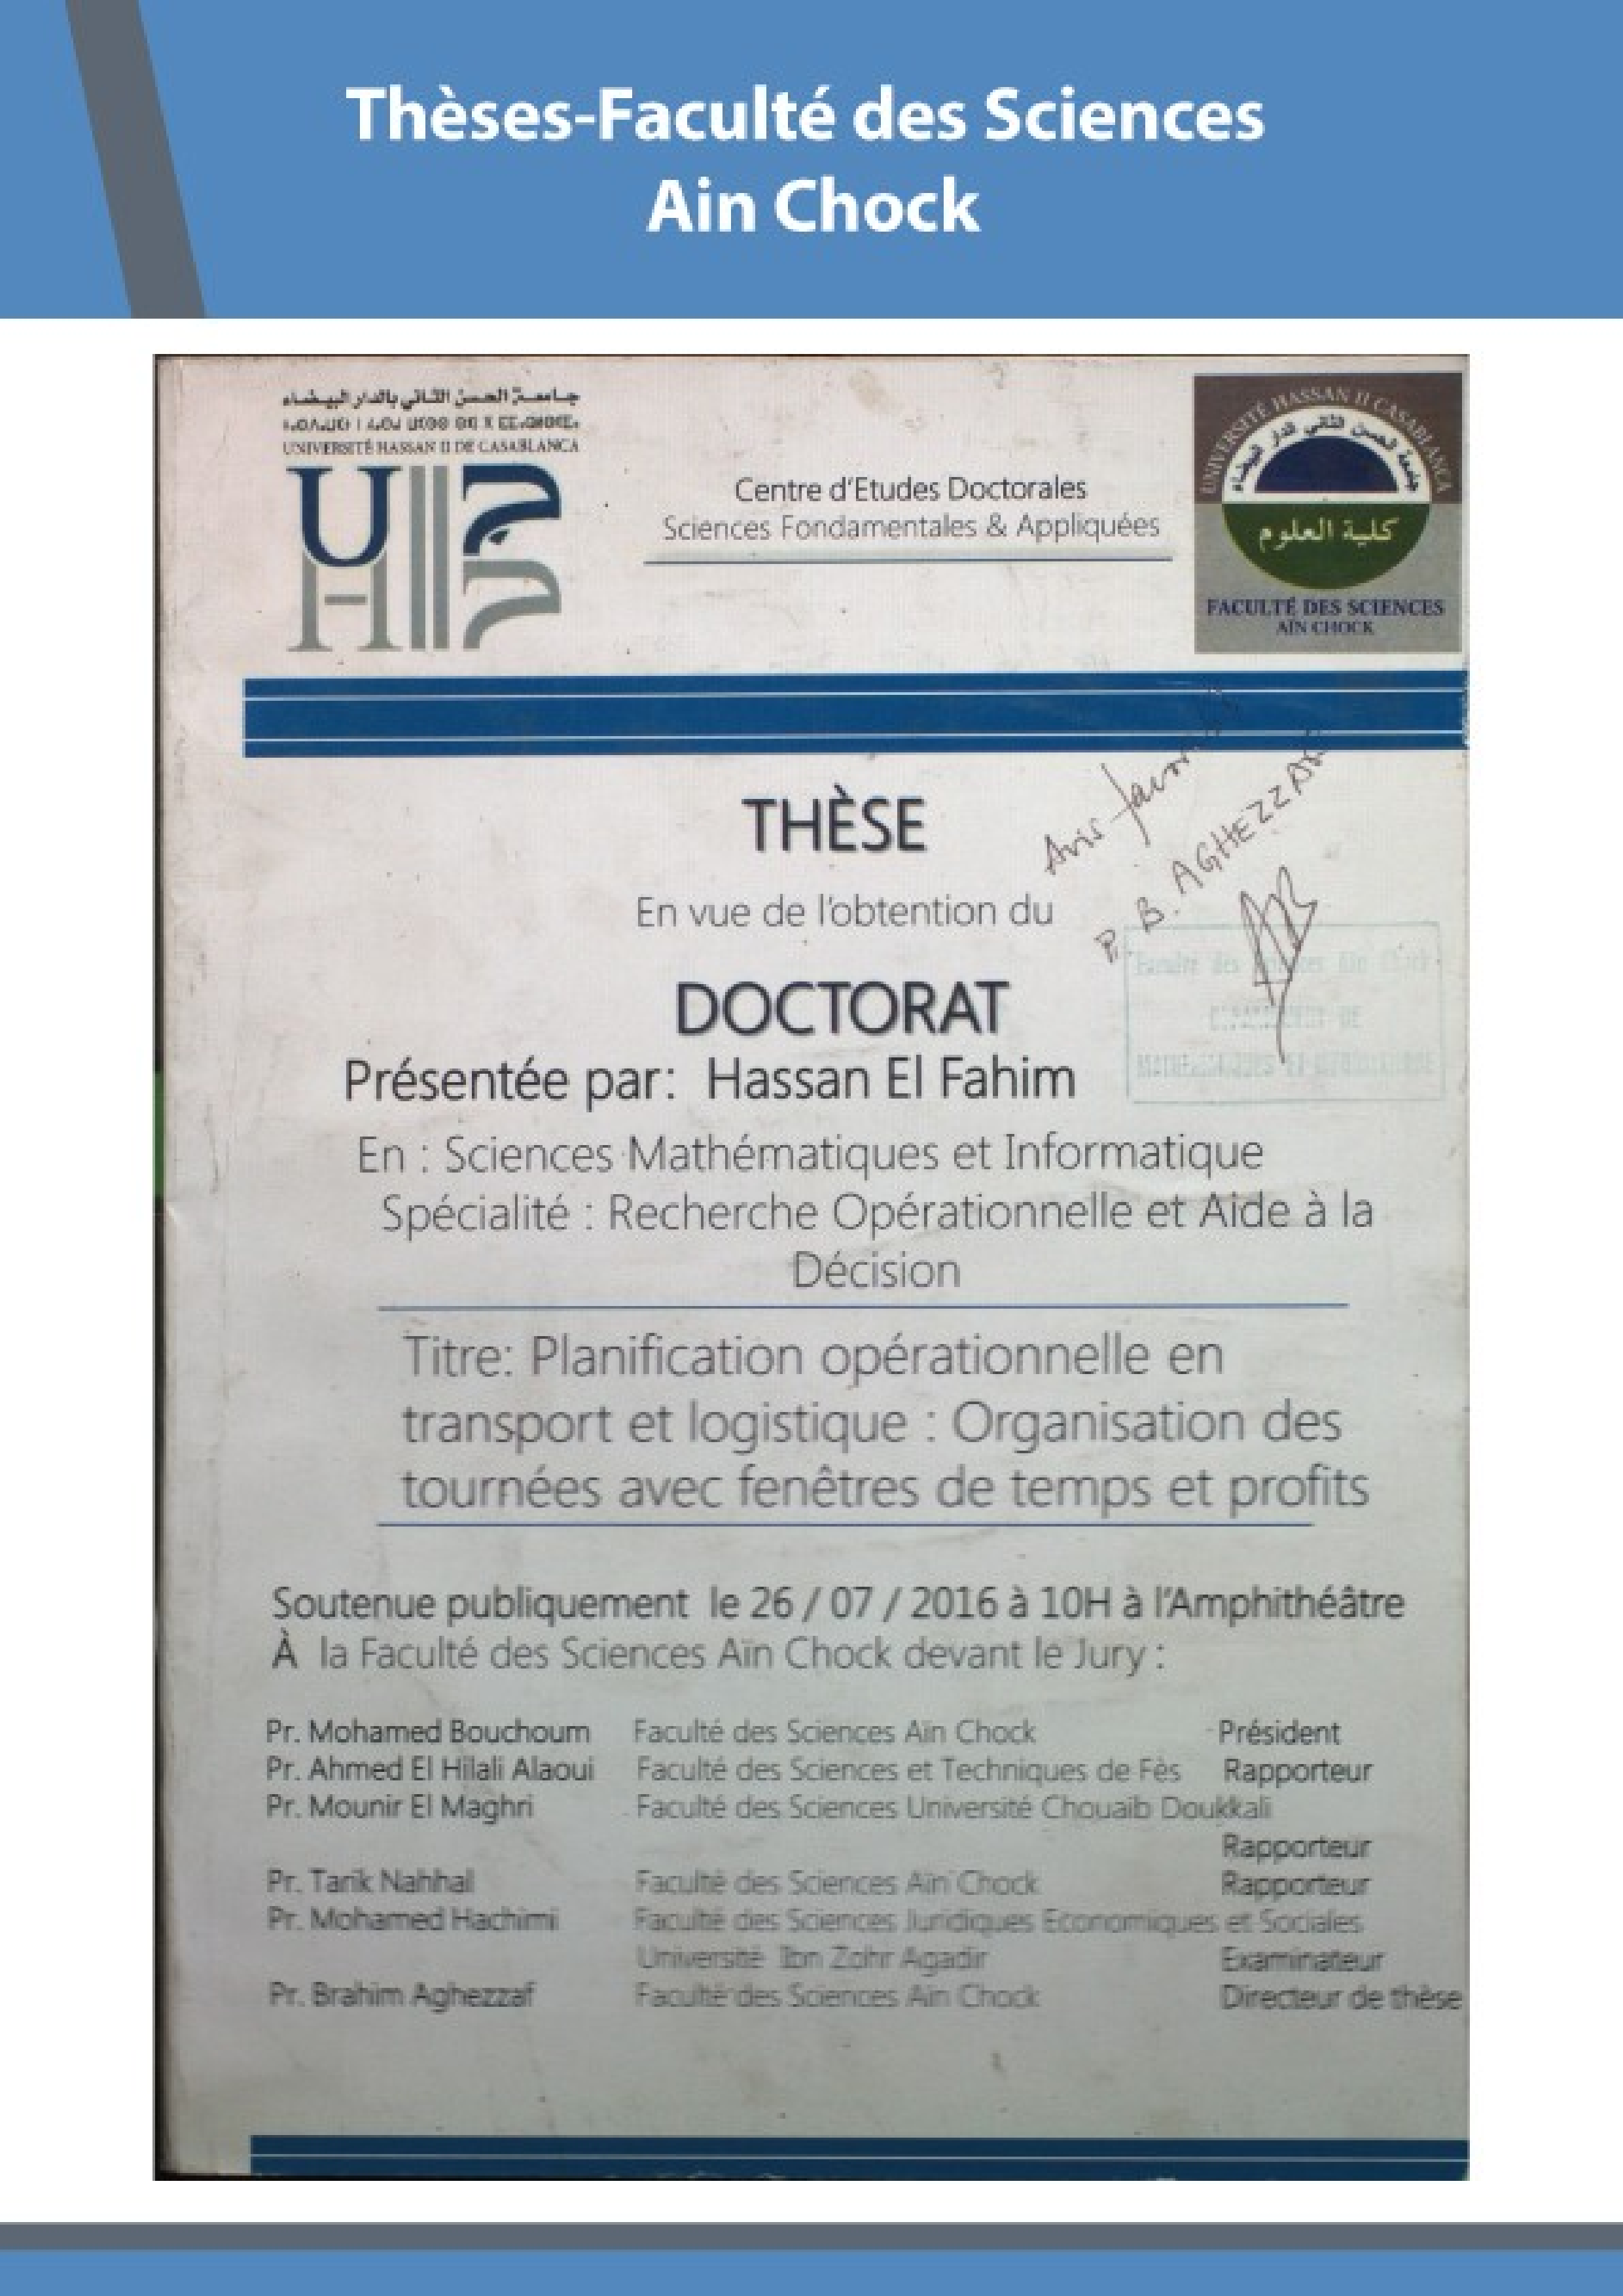 Thèses-Faculté des Sciences
Ain Chock
جامعة الحسن الثاني بالدار البيضاء
UNIVERSITÉ HASSAN II DE CASABLANCA
UH2C
Centre d'Etudes Doctorales
Sciences Fondamentales & Appliquées
UNIVERSITÉ HASSAN II CASABLANCA
جامعة الحسن الثاني الدار البيضاء
كلية العلوم
FACULTÉ DES SCIENCES
AÏN CHOCK
Avis
P. B. AGHEZZAF
THÈSE
En vue de l'obtention du
Faculté des Sciences Ain Chock
DEPARTEMENT DE
MATHEMATIQUES ET INFORMATIQUE
DOCTORAT
Présentée par: Hassan El Fahim
En : Sciences Mathématiques et Informatique
Spécialité : Recherche Opérationnelle et Aide à la
Décision
Titre: Planification opérationnelle en
transport et logistique : Organisation des
tournées avec fenêtres de temps et profits
Soutenue publiquement le 26 / 07 / 2016 à 10H à l'Amphithéâtre
À la Faculté des Sciences Aïn Chock devant le Jury :
Pr. Mohamed Bouchoum Faculté des Sciences Aïn Chock Président
Pr. Ahmed El Hilali Alaoui Faculté des Sciences et Techniques de Fès Rapporteur
Pr. Mounir El Maghri Faculté des Sciences Université Chouaïb Doukkali
Rapporteur
Pr. Tarik Nahhal Faculté des Sciences Aïn Chock Rapporteur
Pr. Mohamed Hachimi Faculté des Sciences Juridiques Economiques et Sociales
Université Ibn Zohr Agadir Examinateur
Pr. Brahim Aghezzaf Faculté des Sciences Aïn Chock Directeur de thèse